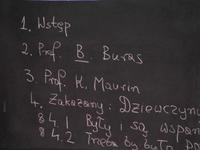 1. Wstęp
2. Prof. B. Buras
3. Prof. K. Maurin
4. Zakazany: Dziewczyny
§ 4.1 Były i są wspan
§ 4.2 Trzeba by było